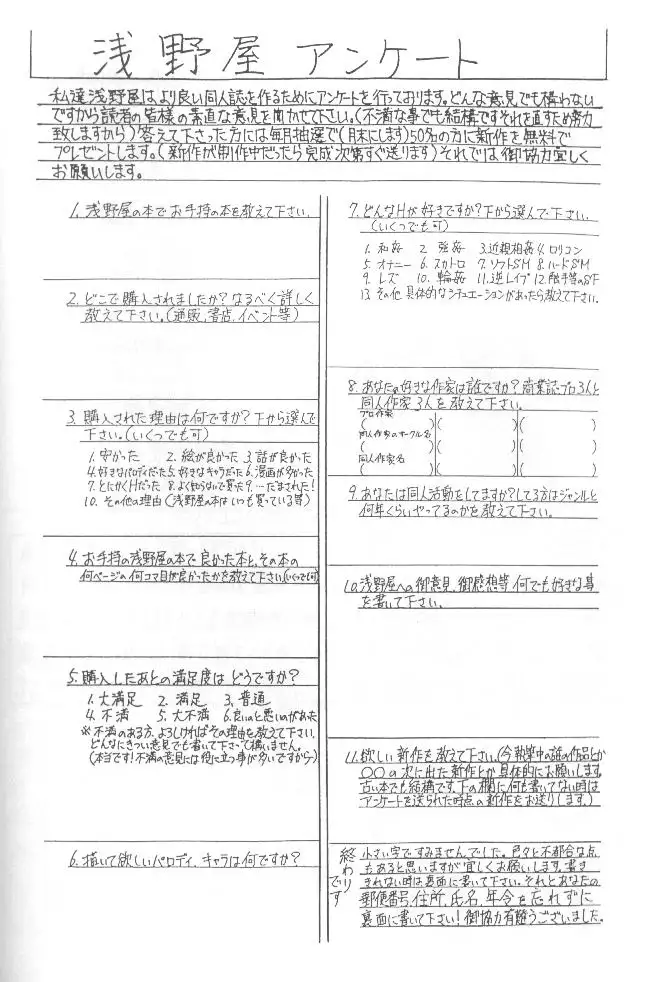 浅野屋 アンケート
私達浅野屋は、より良い同人誌を作るためにアンケートを行っております。どんな意見でも構わない
ですから読者の皆様の素直な意見を聞かせて下さい。(不満な事でも結構ですそれを直すため努力
致しますから)答えて下さった方には毎月抽選で(月末にします)50名の方に新作を無料で
プレゼントします。(新作が制作中だったら完成次第すぐ送ります)それでは御協力宜しく
お願いします。
1. 浅野屋の本でお手持の本を教えて下さい。
2. どこで購入されましたか?なるべく詳しく
教えて下さい。(通販、書店、イベント等)
3. 購入された理由は何ですか?下から選んで
下さい。(いくつでも可)
1. 安かった 2. 絵が良かった 3. 話が良かった
4. 好きなパロディだった 5. 好きなキャラだった 6. 漫画が多かった
7. とにかくHだった 8. よく知らないで買った 9. …だまされた!
10. その他の理由(浅野屋の本はいつも買っている等)
4. お手持の浅野屋の本で良かった本と、その本の
何ページの何コマ目が良かったかを教えて下さい。(いくつでも可)
5. 購入したあとの満足度はどうですか?
1. 大満足 2. 満足 3. 普通
4. 不満 5. 大不満 6. 良いのと悪いのがあった
※不満のある方、よろしければその理由を教えて下さい。
どんなにきつい意見でも書いて下さって構いません。
(本当です!不満の意見には役に立つ事が多いですから)
6. 描いて欲しいパロディ、キャラは何ですか?
7. どんなHが好きですか?下から選んで下さい。
(いくつでも可)
1. 和姦 2. 強姦 3. 近親相姦 4. ロリコン
5. オナニー 6. スカトロ 7. ソフトSM 8. ハードSM
9. レズ 10. 輪姦 11. 逆レイプ 12. 触手等のSF
13. その他 具体的なシチュエーションがあったら教えて下さい。
8. あなたの好きな作家は誰ですか?商業誌・プロ3人と
同人作家3人を教えて下さい。
プロ作家
( )( )( )
同人作家のサークル名
( )( )( )
同人作家名
( )( )( )
9. あなたは同人活動をしてますか?してる方はジャンルと
何年くらいやってるのかを教えて下さい。
10. 浅野屋への御意見、御感想等 何でも好きな事
を書いて下さい。
11. 欲しい新作を教えて下さい。(今執筆中の話の作品とか
〇〇の次に出た新作とか具体的にお願いします。
古い本でも結構です。下の欄に何も書いてない時は
アンケートを送られた時点の新作をお送りします。)
終わりです
小さい字ですみませんでした。色々と不都合な点
もあると思いますが宜しくお願いします。書き
きれない時は裏面に書いて下さい。それとあなたの
郵便番号、住所、氏名、年令を忘れずに
裏面に書いて下さい!御協力有難うございました。